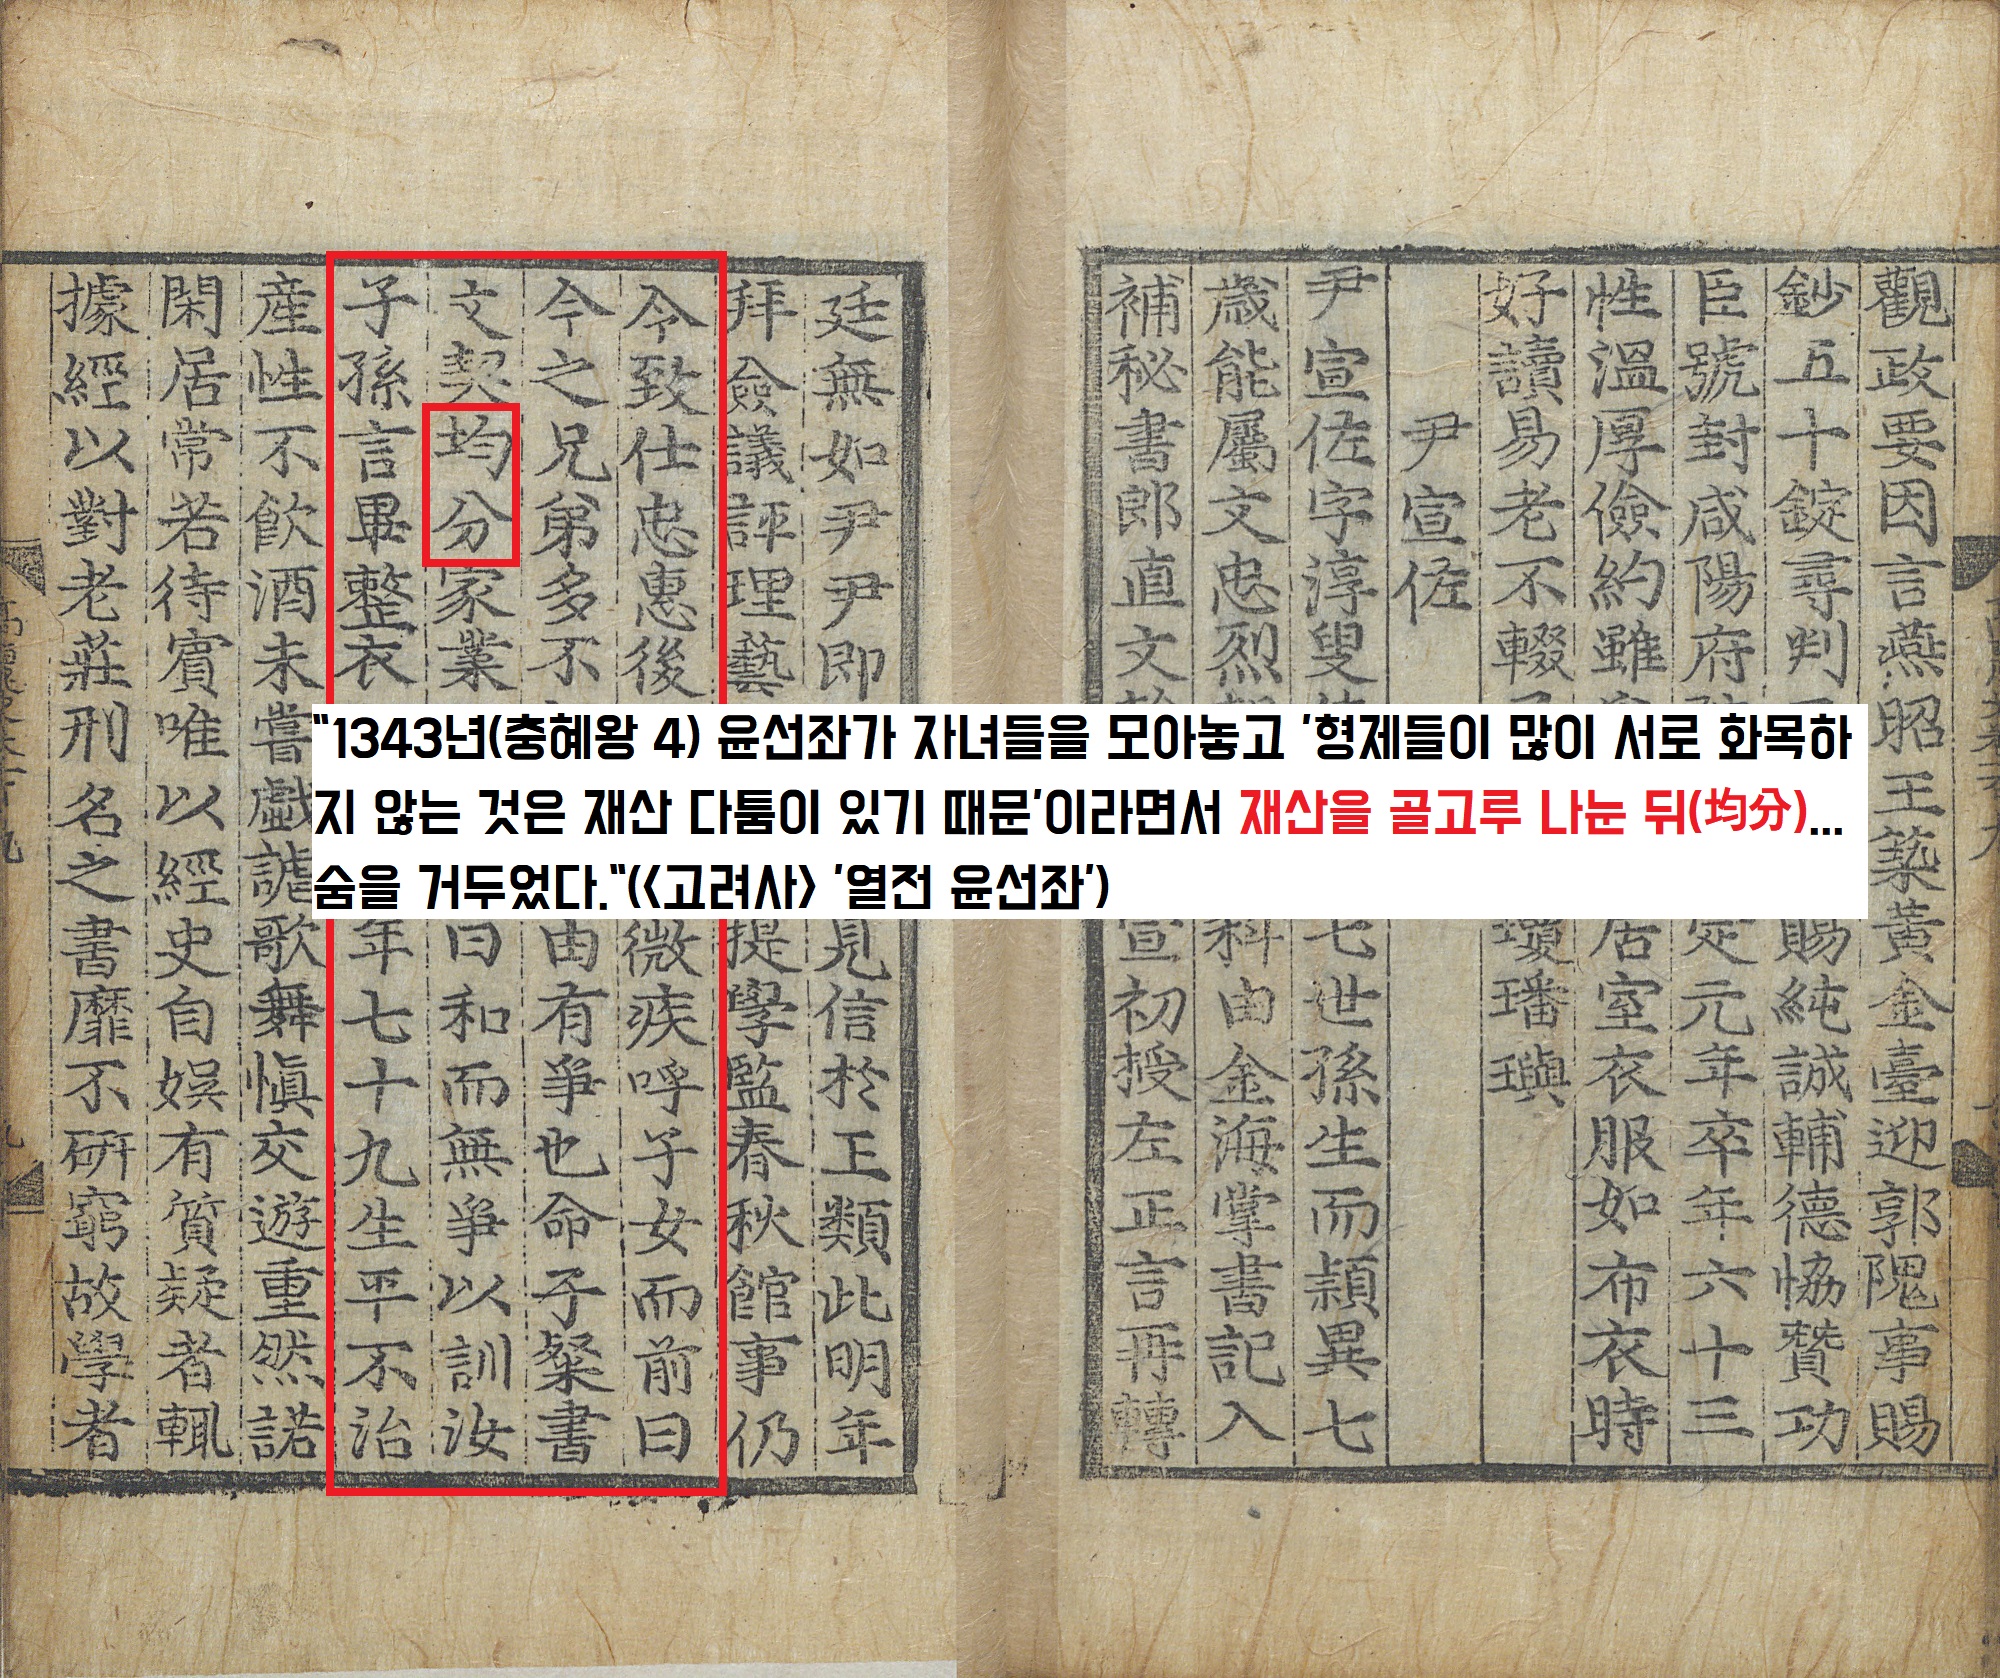 觀政要因言燕昭王築黃金臺迎郭隗事賜
鈔五十錠尋判 賜純誠輔德恊贊功
臣號封咸陽府 定元年卒年六十三
性溫厚儉約雖 居室衣服如布衣時
好讀易老不輟 瓊璠璵
尹宣佐
尹宣佐字淳叟 七世孫生而穎異七
歲能屬文忠烈 科由金海掌書記入
補秘書郎直文 宣初授左正言再轉
廷無如尹尹即 見信於王類此明年
拜僉議評理藝 提學監春秋館事仍
令致仕忠惠後 微疾呼子女而前曰
今之兄弟多不 由有爭也命子粲書
文契均分家業 曰和而無爭以訓汝
子孫言畢整衣 年七十九生平不治
産性不飮酒未嘗戲謔歌舞愼交遊重然諾
閑居常若待賓唯以經史自娛有質疑者輒
據經以對老莊刑名之書靡不硏窮故學者
"1343년(충혜왕 4) 윤선좌가 자녀들을 모아놓고 '형제들이 많이 서로 화목하
지 않는 것은 재산 다툼이 있기 때문'이라면서 재산을 골고루 나눈 뒤(均分)...
숨을 거두었다."(<고려사> '열전 윤선좌')